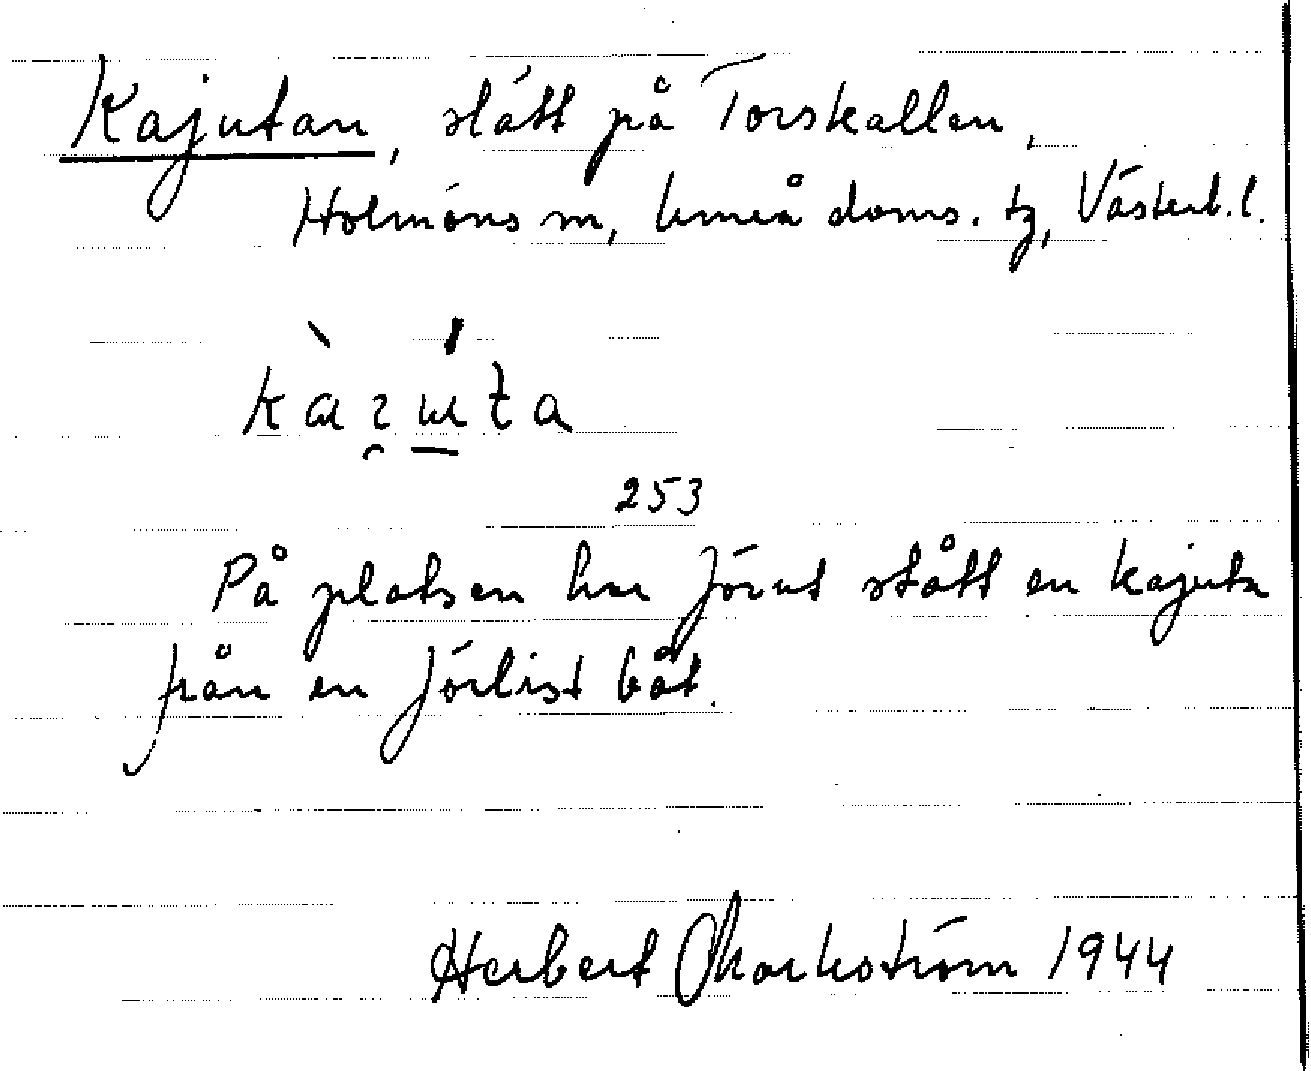 Kajutan, slått på Torskallen,
Holmöns sn, Umeå doms. tg, Västerb. l.
253
På platsen har förut stått en kajuta
från en förlist båt.
Herbert Markström 1944